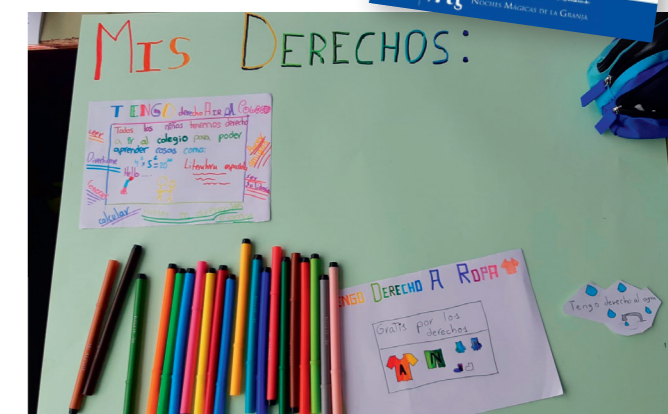 NOCHES MÁGICAS DE LA GRANJA
MIS DERECHOS:
TENGO derecho A IR AL Colegio
Todos los niños tenemos derecho
a ir al colegio para poder
aprender cosas como:
Leer
Divertirme
Hello
Literatura española
calcular
TENGO DERECHO A ROPA
Gratis por los
derechos
A
N
Tengo derecho al agua